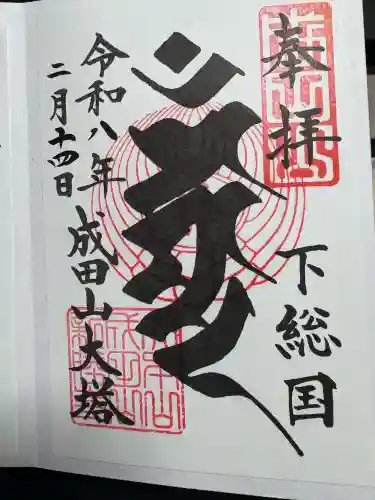 奉拝
下総国
令和八年
二月十四日
成田山大塔